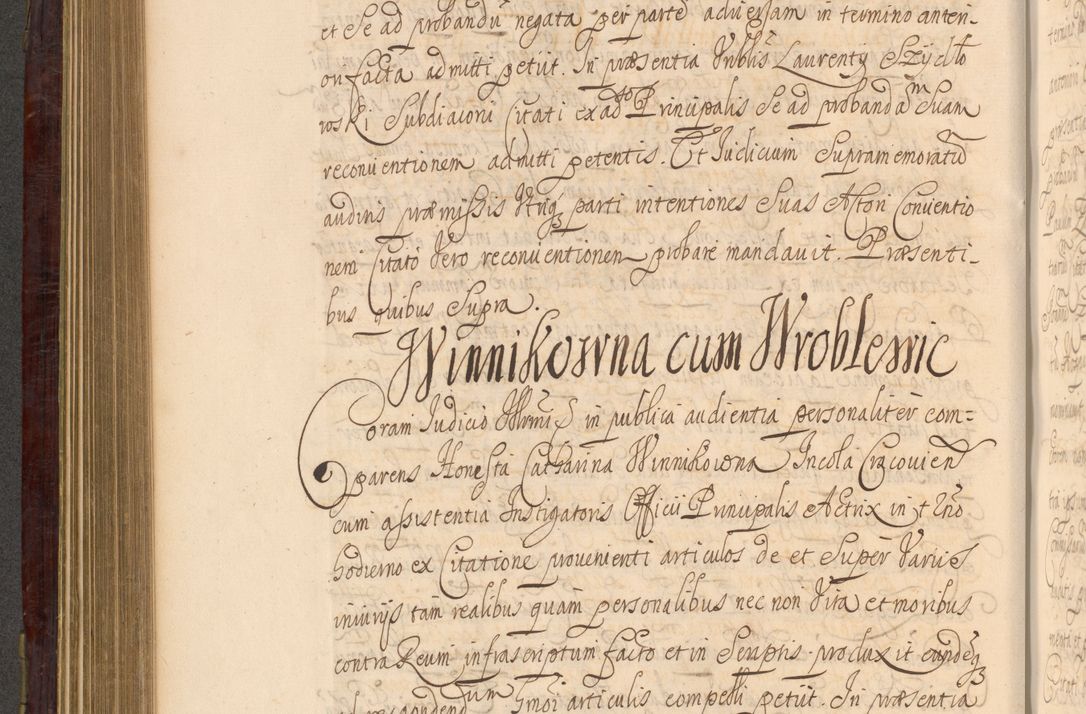 et Se ad probandū negata per partē adversam in termino anteri-
ori facta admitti petiit. In præsentia Nblis Laurenty Szydło
wski Subdiaconi Citati ex adto Principalis Se ad probandam Suam
reconventionem admitti petentis. Et Iudicium Supramemoratū
auditis præmissis utriq3 parti intentiones Suas Actori Conventio
nem Citato Vero reconventionem probare mandavit. Præsenti-
bus quibus Supra.
Winnikowna cum Wroblewic
Coram Iudicio in publica audientia personaliter com=
parens Honesta Catharina Winnikowna Incola Cracovien
cum assistentia Instigatoris Officii Principalis Actrix in termō
hodierno ex Citatione provenienti articulos de et Super Varijs
iniurijs tam realibus quam personalibus nec non Vita et moribus
contra Reum infrascriptum facto et in Scriptis produxit eundeq3
ad respondendum articulis compelli petiit. In præsentia